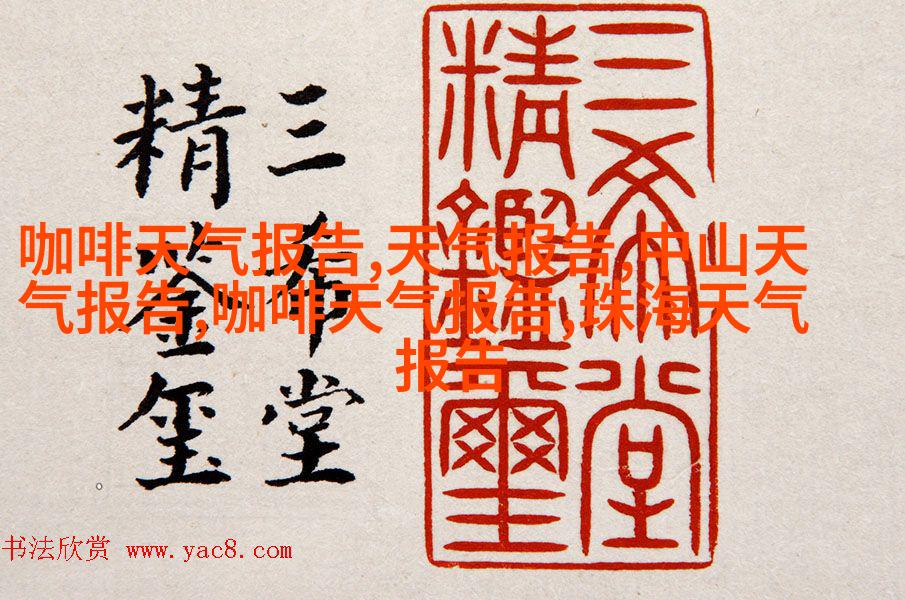 三希堂
精鑑璽
三希堂
精鉴玺
咖啡天气报告,天气报告,中山天
气报告,咖啡天气报告,珠海天气
报告
书法欣赏 www.yac8.com